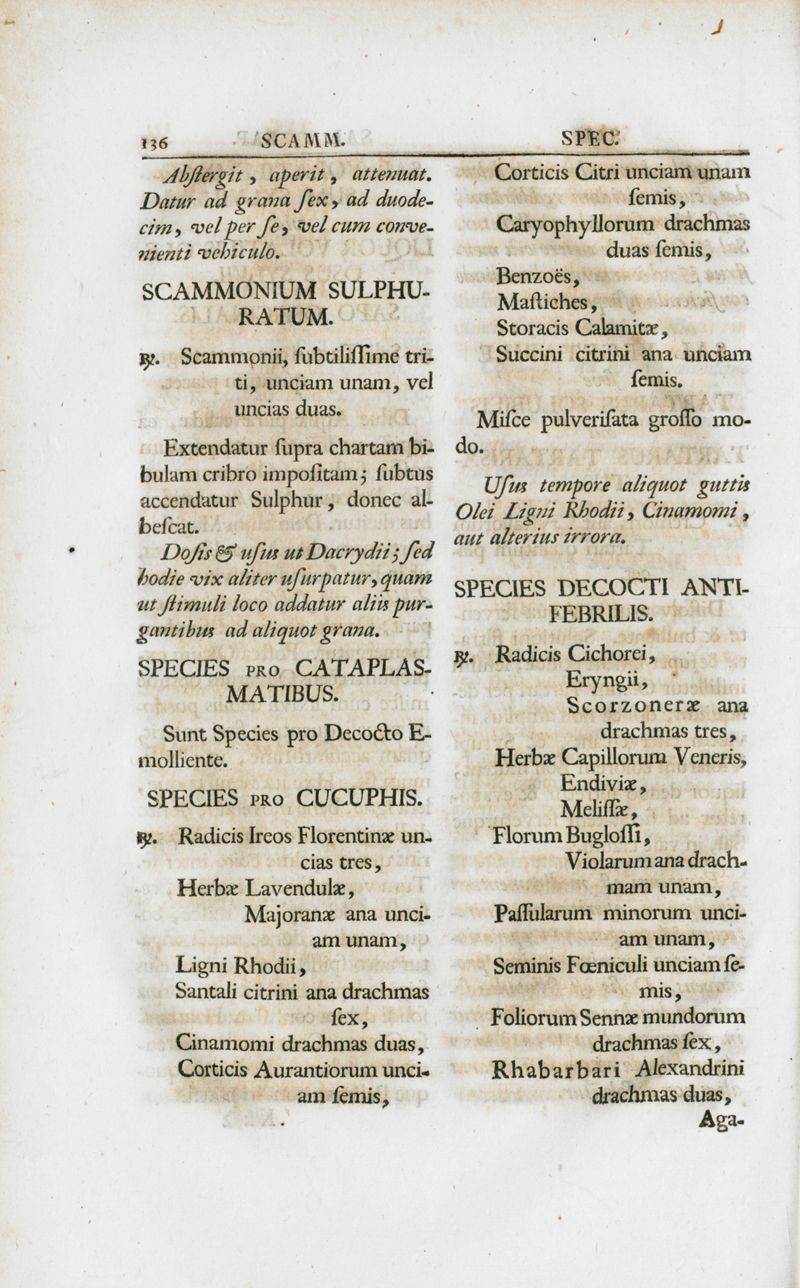 136 SCAMM. SPEC.
Abſtergit, aperit, attenuat.
Datur ad grana ſex, ad duode-
cim, vel per ſe, vel cum conve-
nienti vehiculo.
SCAMMONIUM SULPHU-
RATUM.
℞. Scammonii, ſubtiliſſime tri-
ti, unciam unam, vel
uncias duas.
Extendatur ſupra chartam bi-
bulam cribro impoſitam; ſubtus
accendatur Sulphur, donec al-
beſcat.
Doſis & uſus ut Dacrydii; ſed
hodie vix aliter uſurpatur, quam
ut ſtimuli loco addatur aliis pur-
gantibus ad aliquot grana.
SPECIES PRO CATAPLAS-
MATIBUS.
Sunt Species pro Decocto E-
molliente.
SPECIES PRO CUCUPHIS.
℞. Radicis Ireos Florentinæ un-
cias tres,
Herbæ Lavendulæ,
Majoranæ ana unci-
am unam,
Ligni Rhodii,
Santali citrini ana drachmas
ſex,
Cinamomi drachmas duas,
Corticis Aurantiorum unci-
am ſemis,
Corticis Citri unciam unam
ſemis,
Caryophyllorum drachmas
duas ſemis,
Benzoës,
Maſtiches,
Storacis Calamitæ,
Succini citrini ana unciam
ſemis.
Miſce pulveriſata groſſo mo-
do.
Uſus tempore aliquot guttis
Olei Ligni Rhodii, Cinamomi,
aut alterius irrora.
SPECIES DECOCTI ANTI-
FEBRILIS.
℞. Radicis Cichorei,
Eryngii,
Scorzoneræ ana
drachmas tres,
Herbæ Capillorum Veneris,
Endiviæ,
Meliſſæ,
Florum Bugloſſi,
Violarum ana drach-
mam unam,
Paſſularum minorum unci-
am unam,
Seminis Fœniculi unciam ſe-
mis,
Foliorum Sennæ mundorum
drachmas ſex,
Rhabarbari Alexandrini
drachmas duas,
Aga-